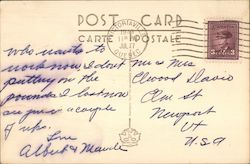 POST CARD
CARTE POSTALE
JUL 27
QUEBEC
3 3
Who wants to
work now I don't
putting on the
pounds I lost now
as give a couple
of wks.
Love
Albert & Maude
Mr & Mrs
Elwood Davis
Elm St
Newport
VT
U.S.A